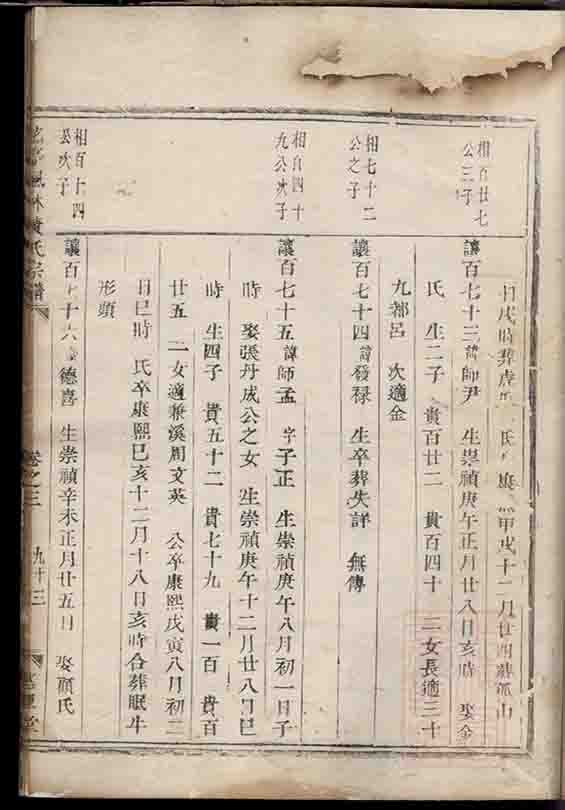 相百廿七
公三子
相七十二
公之子
相百四十
九公次子
相百十四
公次子
日戌時葬虎 氏 康熙甲戌十二月廿四葬孤山
讓百七十三諱師尹 生崇禎庚午正月廿八日亥時 娶金
氏 生二子 貴百廿二 貴百四十 二女長適三十
九都呂 次適金
讓百七十四諱發禄 生卒葬失詳 無傳
讓百七十五諱師孟 字子正 生崇禎庚午八月初一日子
時 娶張丹成公之女 生崇禎庚午十二月廿八日巳
時 生四子 貴五十二 貴七十九 貴一百 貴百
廿五 一女適兼溪周文英 公卒康熙戊寅八月初二
日巳時 氏卒康熙巳亥十二月十八日亥時合葬眠牛
形頭
讓百七十六諱德喜 生崇禎辛未正月廿五日 娶顏氏
林黄氏宗譜 卷之三 九十三 堂